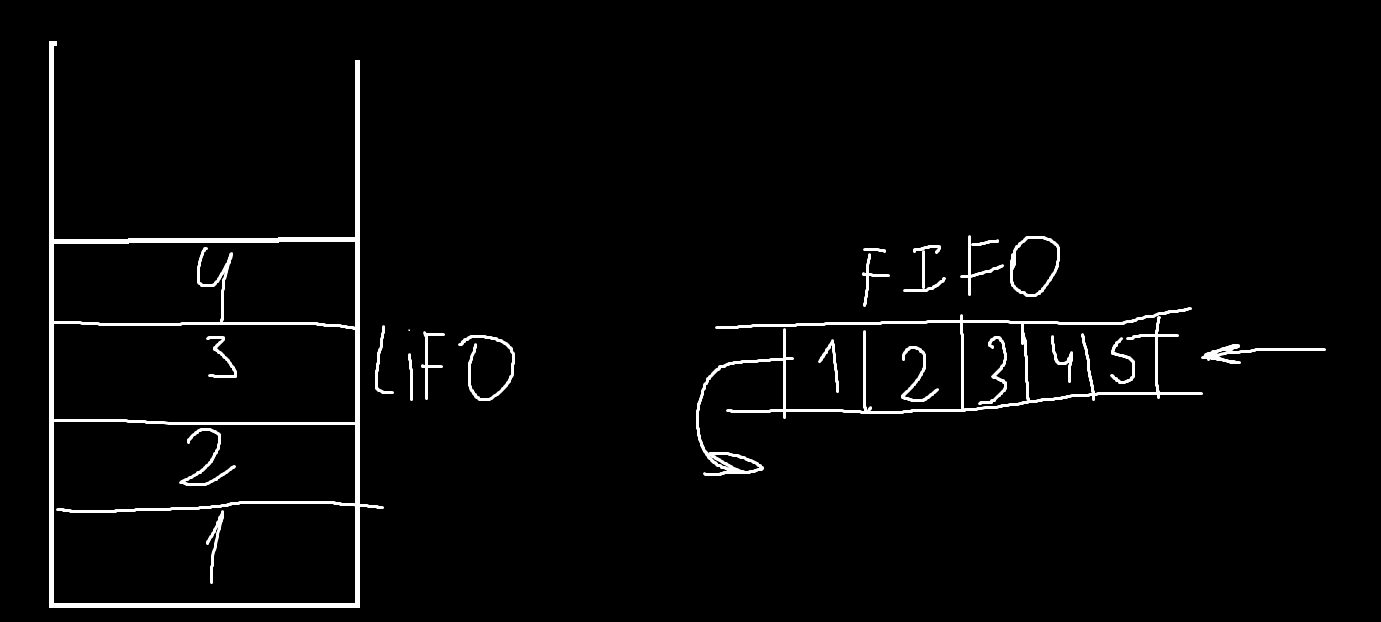 4
3
2
1
LiFO
FIFO
1 2 3 4 5